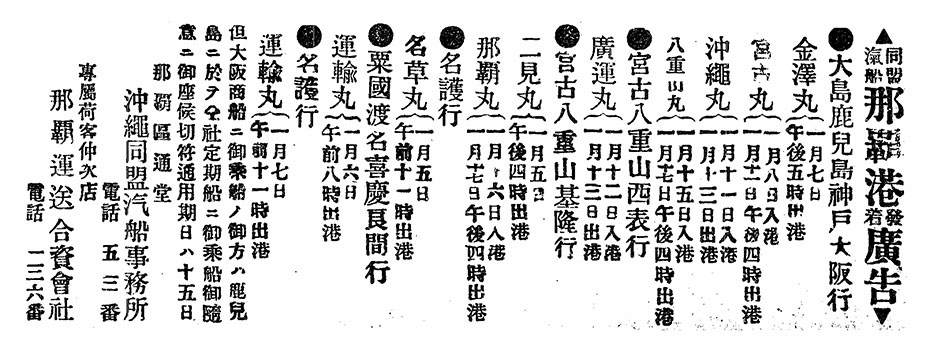 ▲同盟汽船那覇港發着廣告▼
●大島鹿兒島神戸大阪行
金澤丸{一月七日
午後五時出港
宮古丸{一月八日入港
一月十一日午後四時出港
沖繩丸{一月十一日入港
一月十三日出港
八重山丸{一月十五日入港
一月十七日午後四時出港
●宮古八重山西表行
廣運丸{一月十二日入港
一月十三日出港
●宮古八重山基隆行
二見丸{一月五日
午後四時出港
那覇丸{一月十六日入港
一月十七日午後四時出港
●名護行
名草丸{一月五日
午前十一時出港
●粟國渡名喜慶良間行
運輸丸{一月六日
午前八時出港
●名護行
運輸丸{一月七日
午前十一時出港
但大阪商船ニ御乘船ノ御方ハ鹿兒
島ニ於テ仝社定期船ニ御乘船御隨
意ニ御座候切符通用期日ハ十五日
那覇區通堂
沖繩同盟汽船事務所
電話 五三番
專屬荷客仲次店
那覇運送合資會社
電話 一二六番